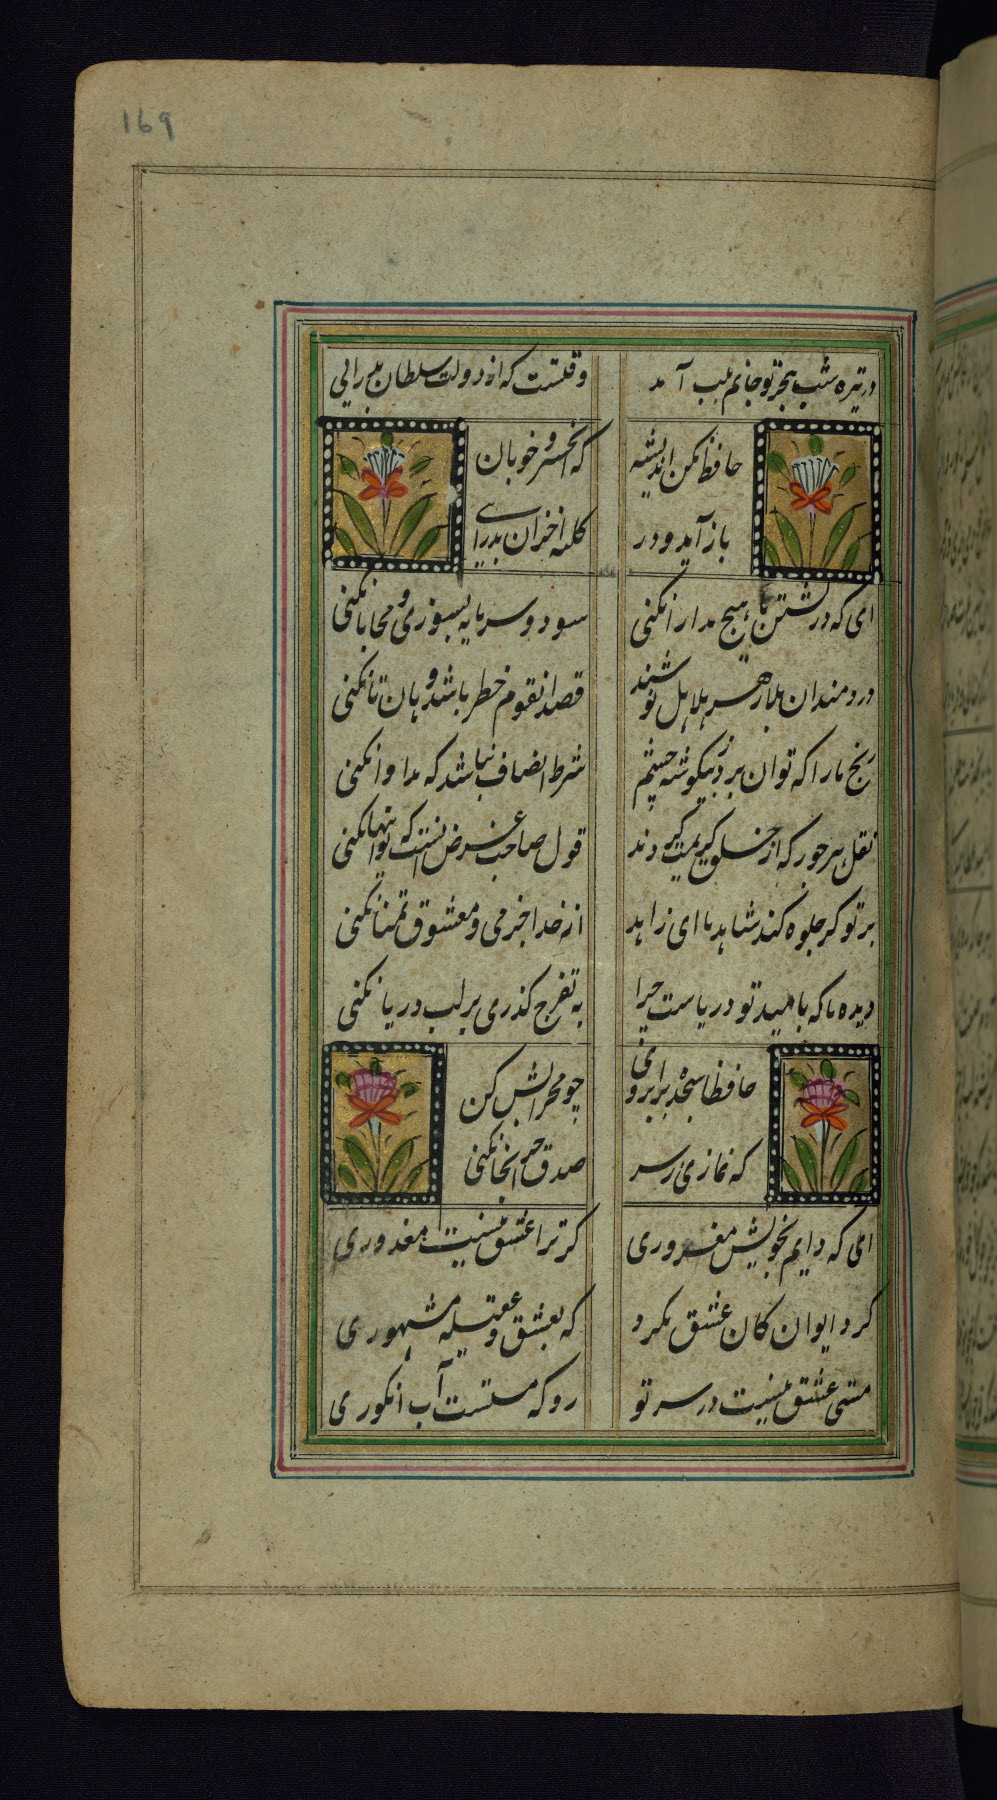 169
در تیره شب هجر تو جانم بلب آمد
وقتست که از دولت سلطان بسرایی
حافظ مکن اندیشه
که آن خسرو خوبان
باز آید و در
کلبه احزان بدرآیی
ای که در کشتن ما هیچ مدارا نکنی
سود و سرمایه بسوزی و محابا نکنی
دردمندان بلا زهر هلاهل نوشند
قصد اینقوم خطر باشد و هان تا نکنی
رنج ما را که توان برد بیکگوشه چشم
شرط انصاف نباشد که مداوا نکنی
نقل هر جور که از خلق کریمت کردند
قول صاحب غرض انست که تو انها نکنی
بر تو گر جلوه کند شاهد ما ای زاهد
از خدا جز می و معشوق تمنا نکنی
دیده ما که بامید تو دریاست چرا
به تفرج گذری بر لب دریا نکنی
حافظا سجده برابروی
چو محرابش کن
که نماز می سر
صدق جز آنجا نکنی
ای که دایم بخویش مغروری
گر ترا عشق نیست معذوری
گرد ایوان کان عشق مگرد
که بعشق و عقیله مشهوری
مستی عشق نیست در سر تو
رو که مستت آب انگوری